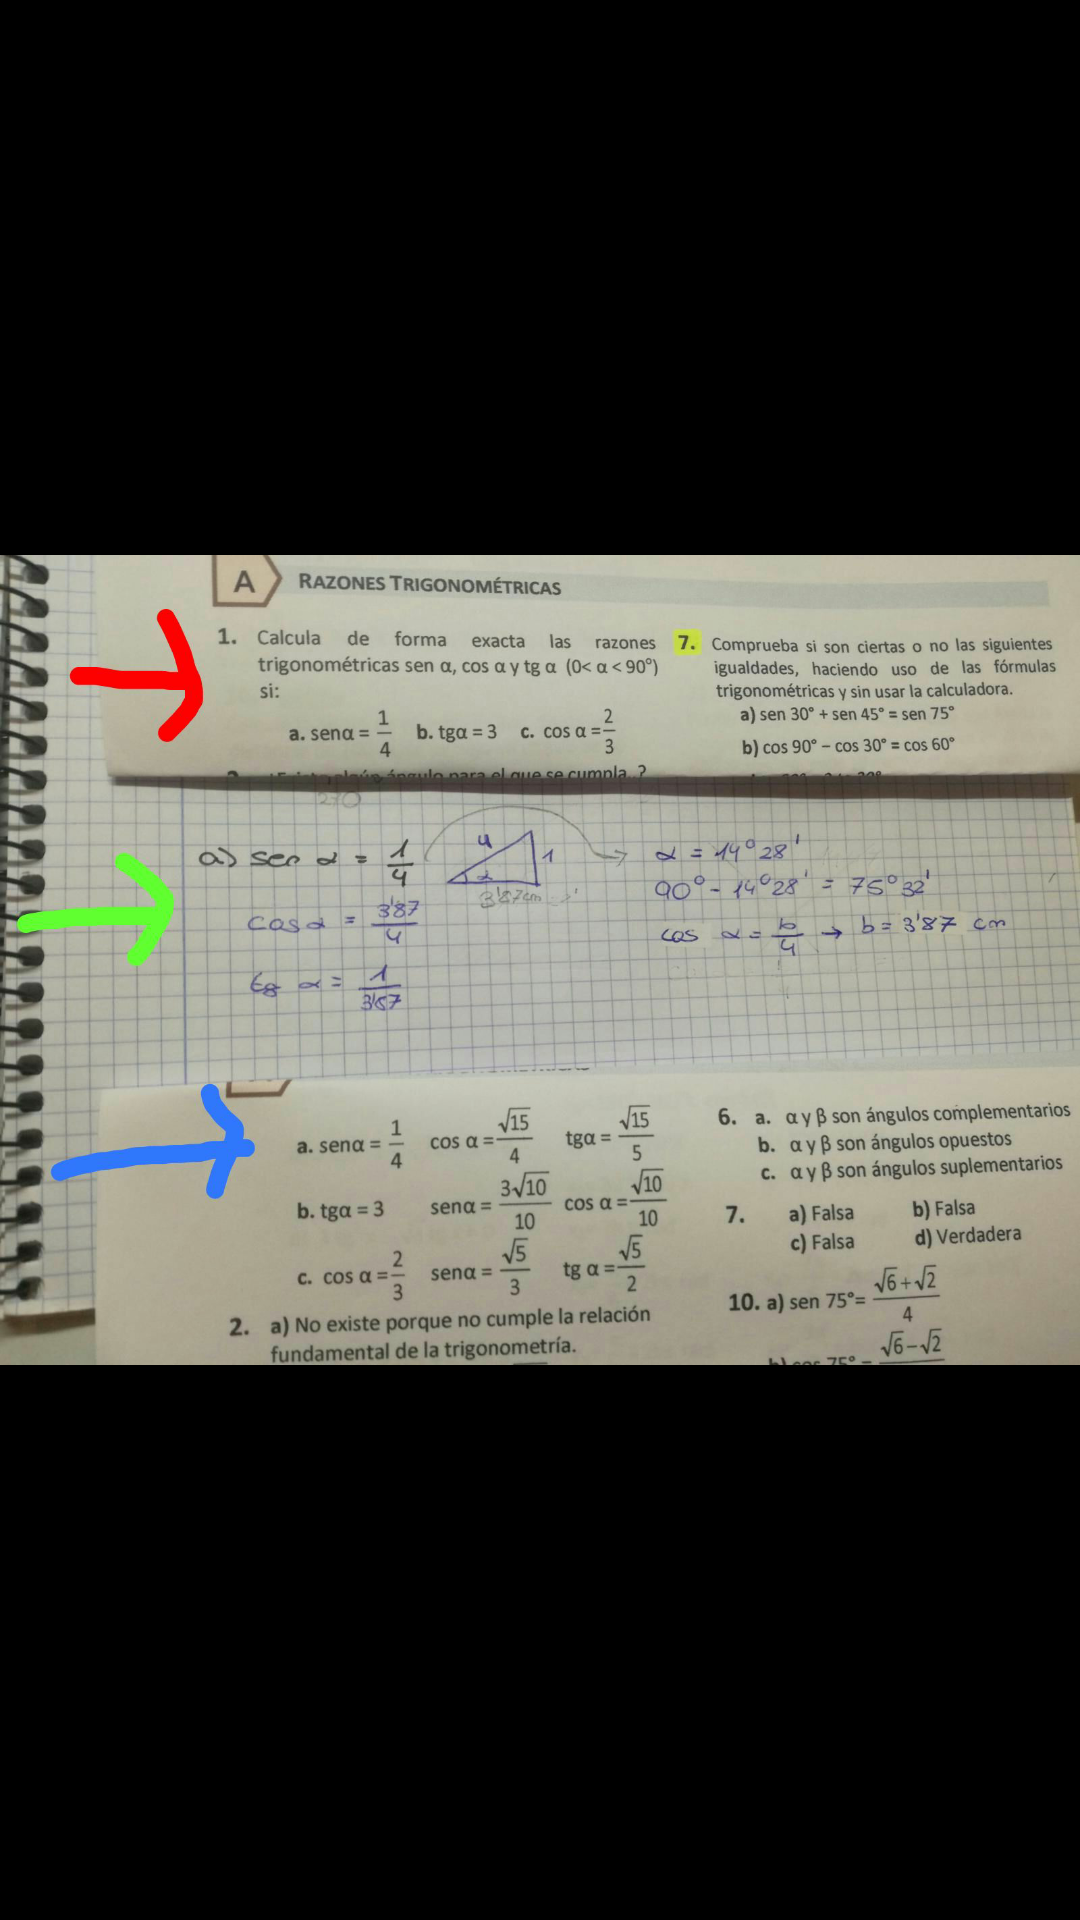 A RAZONES TRIGONOMÉTRICAS
1. Calcula de forma exacta las razones
trigonométricas sen α, cos α y tg α (0< α < 90°)
si:
a. senα = 1/4 b. tgα = 3 c. cos α = 2/3
algún ángulo para el que se cumpla..?
7. Comprueba si son ciertas o no las siguientes
igualdades, haciendo uso de las fórmulas
trigonométricas y sin usar la calculadora.
a) sen 30° + sen 45° = sen 75°
b) cos 90° – cos 30° = cos 60°
270
a) sen α = 1/4
4
1
α
3'87cm
cos α = 3'87/4
tg α = 1/3'87
α = 14° 28'
90° - 14° 28' = 75° 32'
cos α = b/4 → b = 3'87 cm
a. senα = 1/4 cos α = √15/4 tgα = √15/5
b. tgα = 3 senα = 3√10/10 cos α = √10/10
c. cos α = 2/3 senα = √5/3 tg α = √5/2
2. a) No existe porque no cumple la relación
fundamental de la trigonometría.
6. a. α y β son ángulos complementarios
b. α y β son ángulos opuestos
c. α y β son ángulos suplementarios
7. a) Falsa b) Falsa
c) Falsa d) Verdadera
10. a) sen 75°= √6+√2/4
b) cos 75° = √6–√2